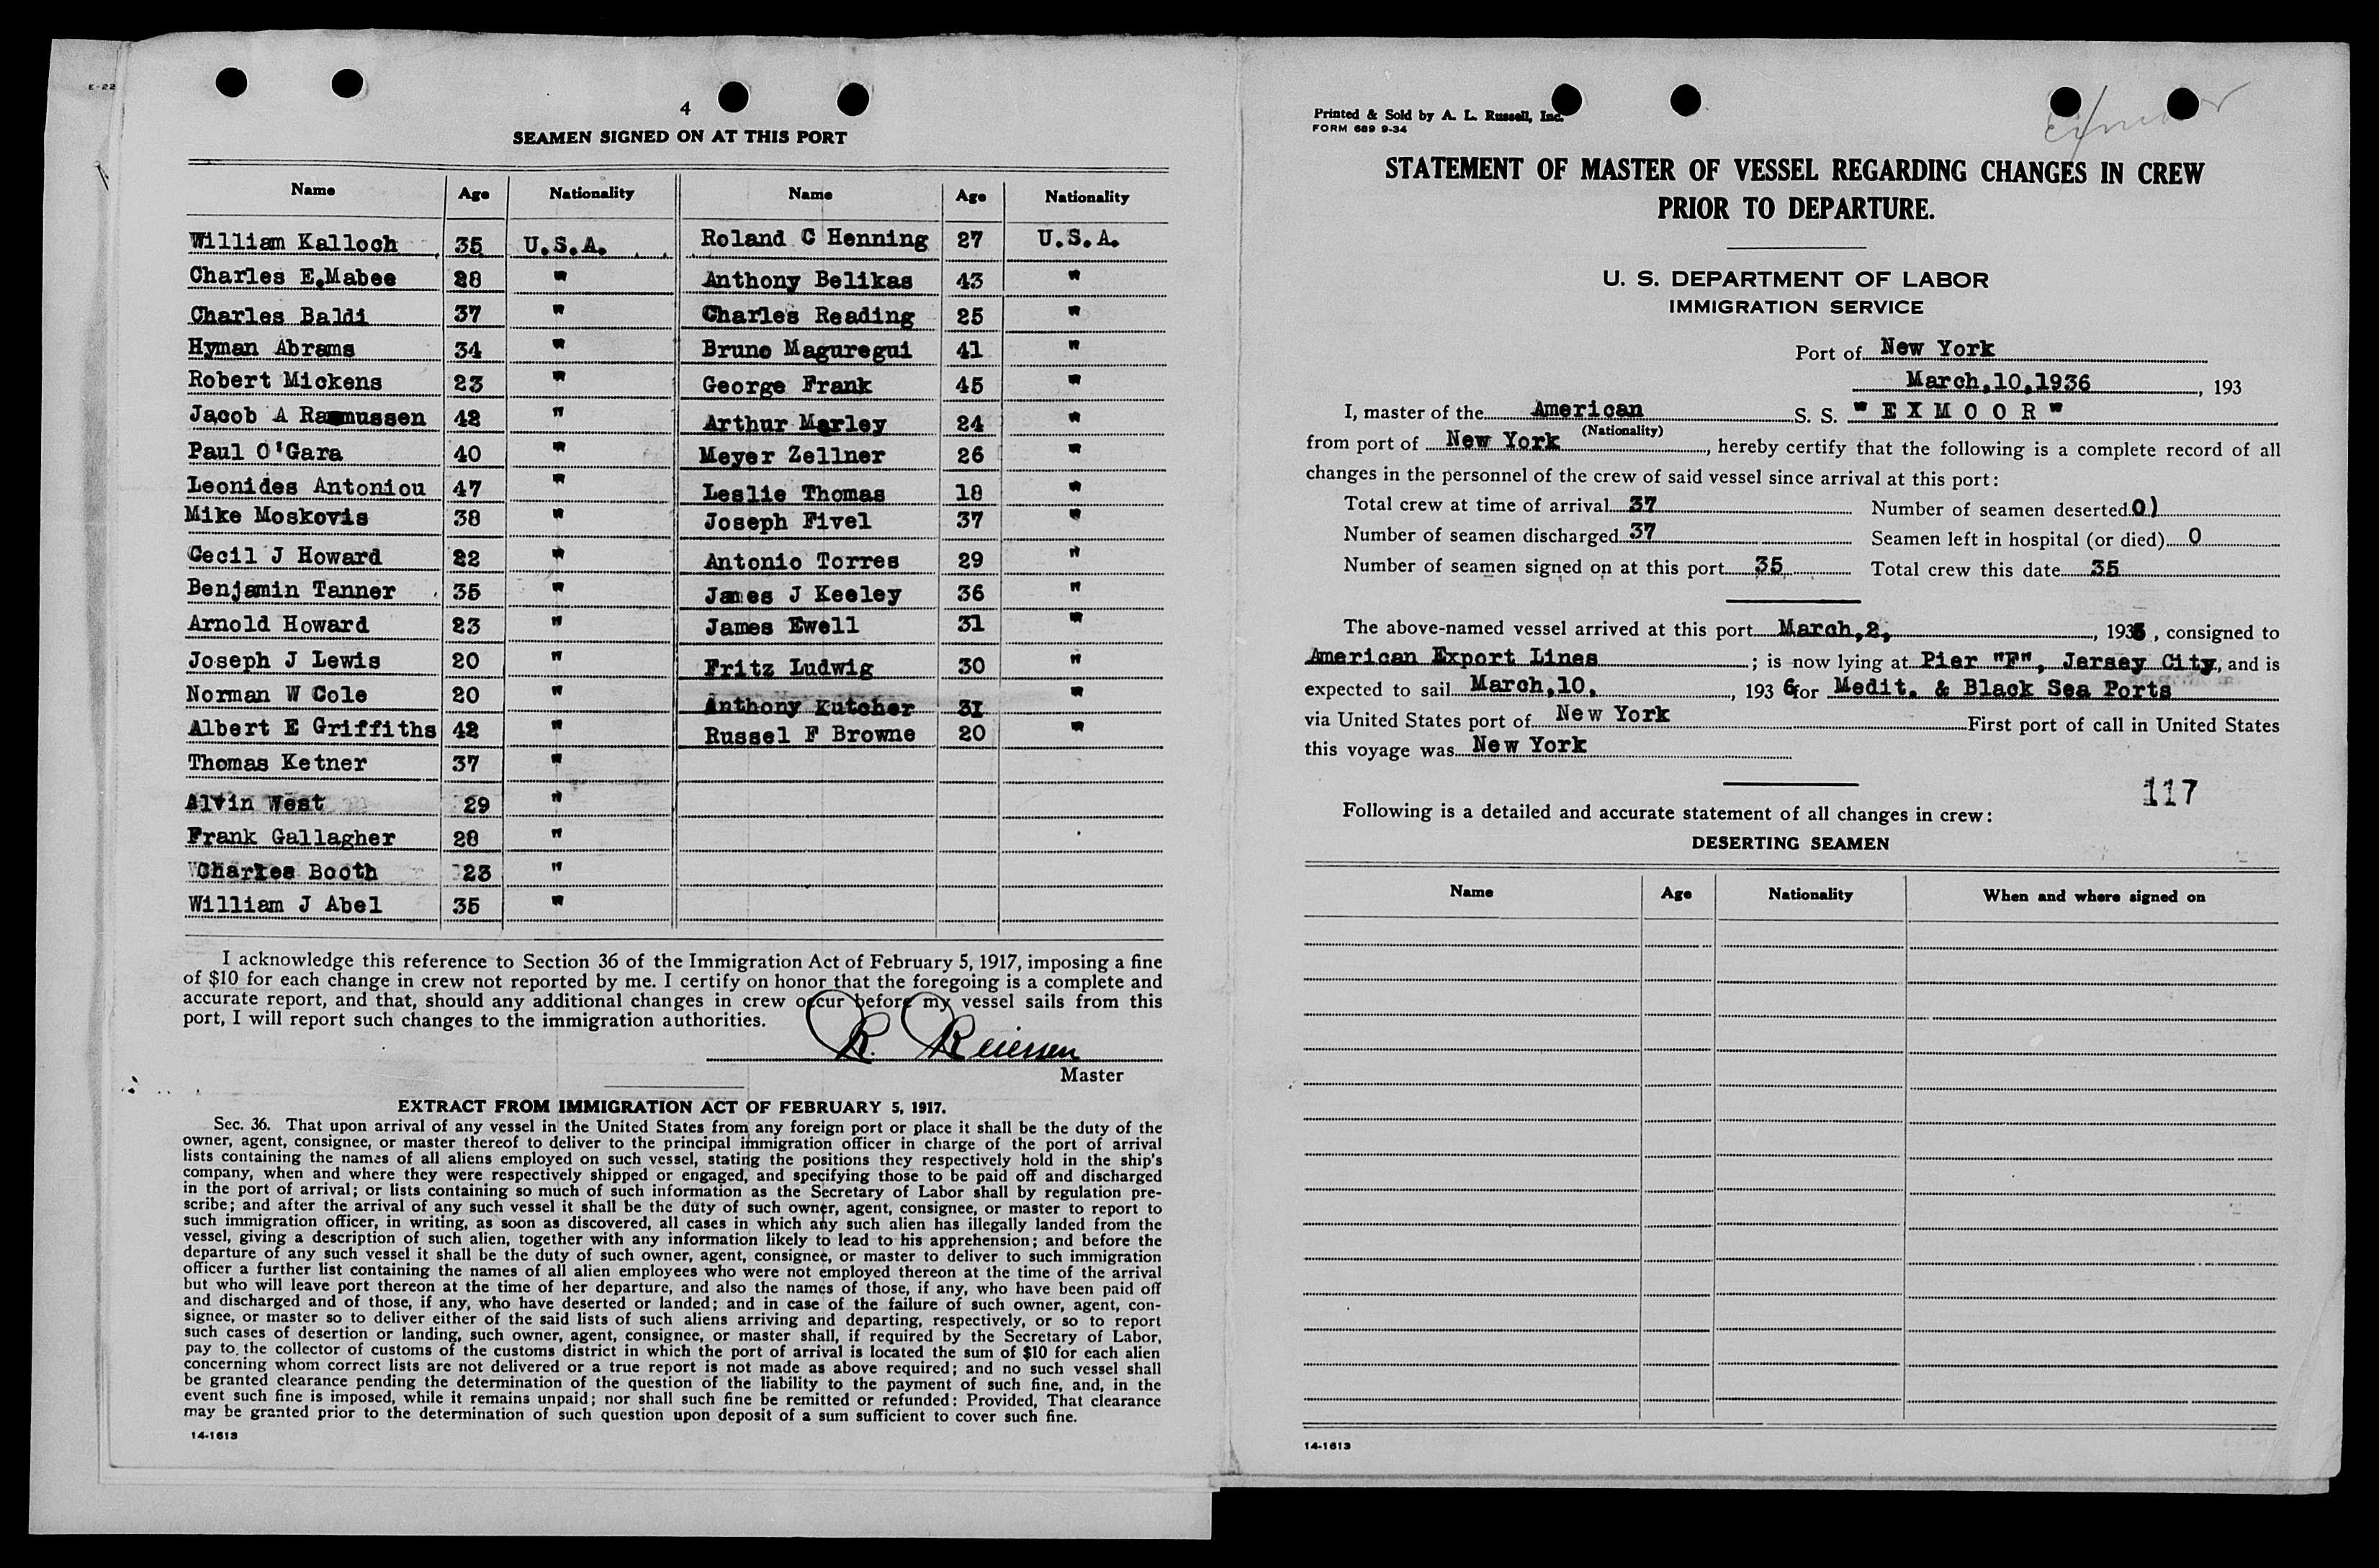 E-22
4
SEAMEN SIGNED ON AT THIS PORT
Name Age Nationality Name Age Nationality
William Kalloch 35 U.S.A. Roland C Henning 27 U.S.A.
Charles E.Mabee 28 " Anthony Belikas 43 "
Charles Baldi 37 " Charles Reading 25 "
Hyman Abrams 34 " Bruno Maguregui 41 "
Robert Mickens 23 " George Frank 45 "
Jacob A Rasmussen 42 " Arthur Marley 24 "
Paul O'Gara 40 " Meyer Zellner 26 "
Leonides Antoniou 47 " Leslie Thomas 18 "
Mike Moskovis 38 " Joseph Fivel 37 "
Cecil J Howard 22 " Antonio Torres 29 "
Benjamin Tanner 35 " James J Keeley 36 "
Arnold Howard 23 " James Ewell 31 "
Joseph J Lewis 20 " Fritz Ludwig 30 "
Norman W Cole 20 " Anthony Kutcher 31 "
Albert E Griffiths 42 " Russel F Browne 20 "
Thomas Ketner 37 "
Alvin West 29 "
Frank Gallagher 28 "
Charles Booth 23 "
William J Abel 35 "
I acknowledge this reference to Section 36 of the Immigration Act of February 5, 1917, imposing a fine
of $10 for each change in crew not reported by me. I certify on honor that the foregoing is a complete and
accurate report, and that, should any additional changes in crew occur before my vessel sails from this
port, I will report such changes to the immigration authorities.
R. Reiersen
Master
EXTRACT FROM IMMIGRATION ACT OF FEBRUARY 5, 1917.
Sec. 36. That upon arrival of any vessel in the United States from any foreign port or place it shall be the duty of the
owner, agent, consignee, or master thereof to deliver to the principal immigration officer in charge of the port of arrival
lists containing the names of all aliens employed on such vessel, stating the positions they respectively hold in the ship's
company, when and where they were respectively shipped or engaged, and specifying those to be paid off and discharged
in the port of arrival; or lists containing so much of such information as the Secretary of Labor shall by regulation pre-
scribe; and after the arrival of any such vessel it shall be the duty of such owner, agent, consignee, or master to report to
such immigration officer, in writing, as soon as discovered, all cases in which any such alien has illegally landed from the
vessel, giving a description of such alien, together with any information likely to lead to his apprehension; and before the
departure of any such vessel it shall be the duty of such owner, agent, consignee, or master to deliver to such immigration
officer a further list containing the names of all alien employees who were not employed thereon at the time of the arrival
but who will leave port thereon at the time of her departure, and also the names of those, if any, who have been paid off
and discharged and of those, if any, who have deserted or landed; and in case of the failure of such owner, agent, con-
signee, or master so to deliver either of the said lists of such aliens arriving and departing, respectively, or so to report
such cases of desertion or landing, such owner, agent, consignee, or master shall, if required by the Secretary of Labor,
pay to the collector of customs of the customs district in which the port of arrival is located the sum of $10 for each alien
concerning whom correct lists are not delivered or a true report is not made as above required; and no such vessel shall
be granted clearance pending the determination of the question of the liability to the payment of such fine, and, in the
event such fine is imposed, while it remains unpaid; nor shall such fine be remitted or refunded: Provided, That clearance
may be granted prior to the determination of such question upon deposit of a sum sufficient to cover such fine.
14-1613
Printed & Sold by A. L. Russell, Inc.
FORM 689 9-34
STATEMENT OF MASTER OF VESSEL REGARDING CHANGES IN CREW
PRIOR TO DEPARTURE.
U. S. DEPARTMENT OF LABOR
IMMIGRATION SERVICE
Port of New York
March,10,1936, 193
I, master of the American S. S. "EXMOOR"
(Nationality)
from port of New York, hereby certify that the following is a complete record of all
changes in the personnel of the crew of said vessel since arrival at this port:
Total crew at time of arrival 37 Number of seamen deserted 0)
Number of seamen discharged 37 Seamen left in hospital (or died) 0
Number of seamen signed on at this port 35 Total crew this date 35
The above-named vessel arrived at this port March,2, 1936, consigned to
American Export Lines; is now lying at Pier "F", Jersey City, and is
expected to sail March,10, 1936 for Medit. & Black Sea Ports
via United States port of New York First port of call in United States
this voyage was New York
117
Following is a detailed and accurate statement of all changes in crew:
DESERTING SEAMEN
Name Age Nationality When and where signed on
14-1613